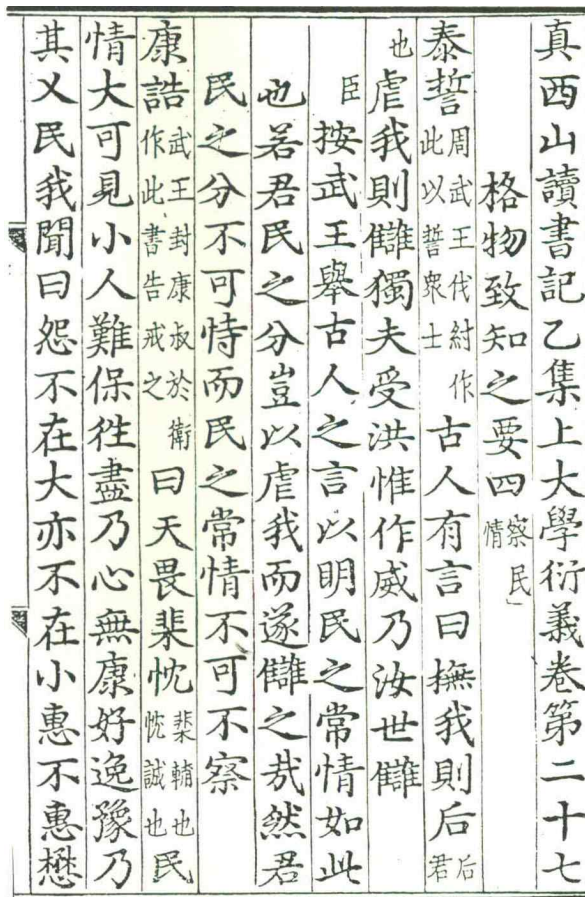 真西山讀書記乙集上大學衍義卷第二十七
格物致知之要四察民情
泰誓周武王伐紂作此以誓衆士古人有言曰撫我則后后君
也虐我則讎獨夫受洪惟作威乃汝世讎
臣按武王舉古人之言以明民之常情如此
也若君民之分豈以虐我而遂讎之㢤然君
民之分不可恃而民之常情不可不察
康誥武王封康叔於衛作此書告戒之曰天畏棐忱棐輔也忱誠也民
情大可見小人難保徃盡乃心無康好逸豫乃
其乂民我聞曰怨不在大亦不在小惠不惠懋